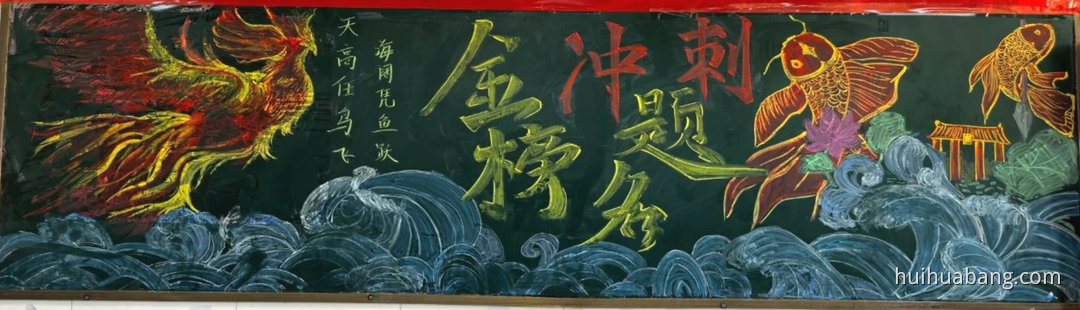 海阔凭鱼跃
天高任鸟飞
冲刺
金榜
题名
huihuabang.com